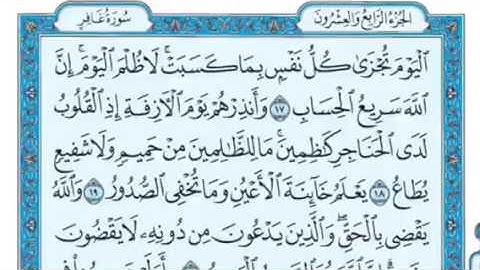 الجزء الرابع والعشرون
سورة غافر
الْيَوْمَ تُجْزَىٰ كُلُّ نَفْسٍ بِمَا كَسَبَتْ ۚ لَا ظُلْمَ الْيَوْمَ ۚ إِنَّ
اللَّهَ سَرِيعُ الْحِسَابِ ١٧ وَأَنذِرْهُمْ يَوْمَ الْآزِفَةِ إِذِ الْقُلُوبُ
لَدَى الْحَنَاجِرِ كَاظِمِينَ ۚ مَا لِلظَّالِمِينَ مِنْ حَمِيمٍ وَلَا شَفِيعٍ
يُطَاعُ ١٨ يَعْلَمُ خَائِنَةَ الْأَعْيُنِ وَمَا تُخْفِي الصُّدُورُ ١٩ وَاللَّهُ
يَقْضِي بِالْحَقِّ ۖ وَالَّذِينَ يَدْعُونَ مِن دُونِهِ لَا يَقْضُونَ